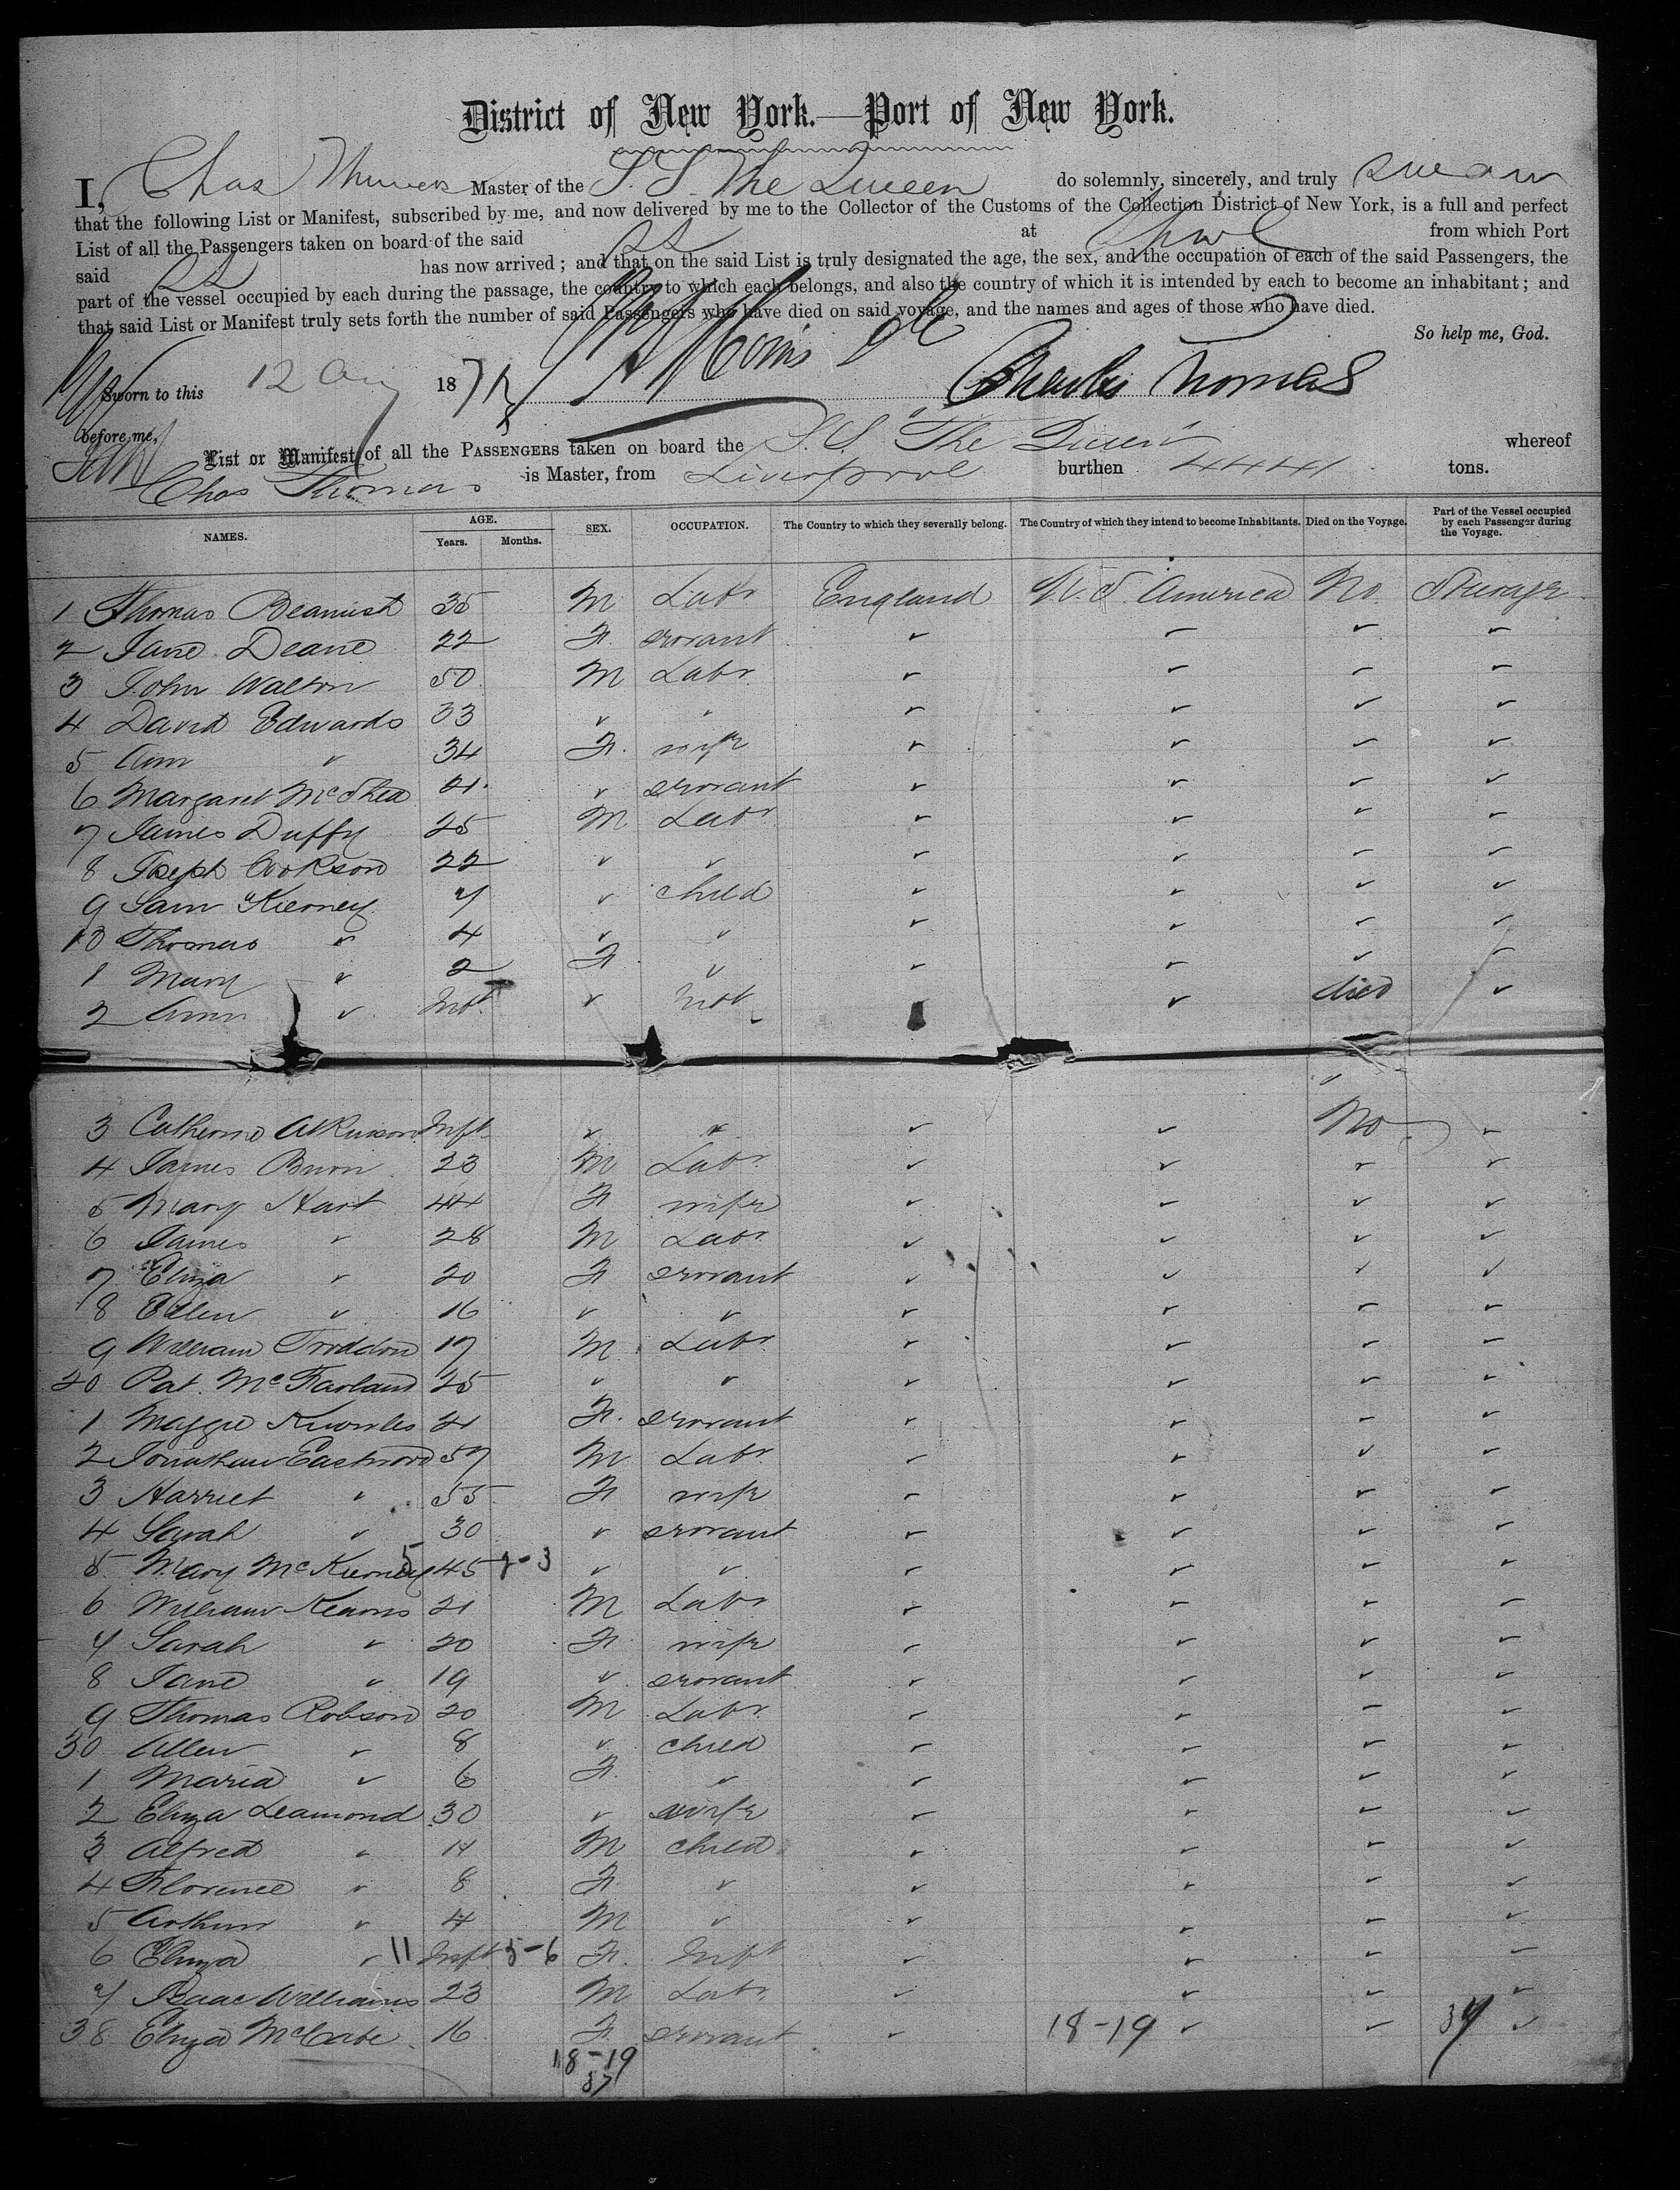 District of New York.—Port of New York.
I, Chas Thomas Master of the S.S. The Queen do solemnly, sincerely, and truly swear
that the following List or Manifest, subscribed by me, and now delivered by me to the Collector of the Customs of the Collection District of New York, is a full and perfect
List of all the Passengers taken on board of the said SS at Lpool from which Port
said SS has now arrived; and that on the said List is truly designated the age, the sex, and the occupation of each of the said Passengers, the
part of the vessel occupied by each during the passage, the country to which each belongs, and also the country of which it is intended by each to become an inhabitant; and
that said List or Manifest truly sets forth the number of said Passengers who have died on said voyage, and the names and ages of those who have died.
So help me, God.
Sworn to this 12 Aug 187 Charles Thomas
before me,
List or Manifest of all the PASSENGERS taken on board the S.S. "The Queen" whereof
Chas Thomas is Master, from Liverpool burthen 4441 tons.
NAMES. AGE. Years. Months. SEX. OCCUPATION. The Country to which they severally belong. The Country of which they intend to become Inhabitants. Died on the Voyage. Part of the Vessel occupied by each Passenger during the Voyage.
1 Thomas Beamish 35 M Labr England U.S. America No. Steerage
2 Jane Deane 22 F. servant ✓ ✓ ✓ ✓
3 John Walton 50 M Labr ✓ ✓ ✓ ✓
4 David Edwards 33 ✓ ✓ ✓ ✓ ✓ ✓
5 Ann ✓ 34 F. wife ✓ ✓ ✓ ✓
6 Margaret McShea 21 ✓ servant ✓ ✓ ✓ ✓
7 James Duffy 25 M Labr ✓ ✓ ✓ ✓
8 Joseph Cookson 22 ✓ ✓ ✓ ✓ ✓ ✓
9 Sam Kierney 7 ✓ child ✓ ✓ ✓ ✓
10 Thomas ✓ 4 ✓ ✓ ✓ ✓ ✓ ✓
1 Mary ✓ 2 F ✓ ✓ ✓ ✓ ✓
2 Ann ✓ Inft. ✓ Inft ✓ died ✓
3 Catherine Atkinson Inft ✓ ✓ ✓ ✓ No ✓
4 James Burn 23 M Labr ✓ ✓ ✓ ✓
5 Mary Hart 44 F wife ✓ ✓ ✓ ✓
6 James ✓ 28 M Labr ✓ ✓ ✓ ✓
7 Eliza ✓ 20 F servant ✓ ✓ ✓ ✓
8 Ellen ✓ 16 ✓ ✓ ✓ ✓ ✓ ✓
9 William Troddon 17 M Labr ✓ ✓ ✓ ✓
20 Pat. McFarland 25 ✓ ✓ ✓ ✓ ✓ ✓
1 Maggie Knowles 21 F. servant ✓ ✓ ✓ ✓
2 Jonathan Eastwood 57 M Labr ✓ ✓ ✓ ✓
3 Harriet ✓ 55 F wife ✓ ✓ ✓ ✓
4 Sarah ✓ 30 ✓ servant ✓ ✓ ✓ ✓
5 Mary McKierney 45 ✓ ✓ ✓ ✓ ✓ ✓
6 William Kearns 21 M Labr ✓ ✓ ✓ ✓
7 Sarah ✓ 20 F wife ✓ ✓ ✓ ✓
8 Jane ✓ 19 ✓ servant ✓ ✓ ✓ ✓
9 Thomas Robson 20 M Labr. ✓ ✓ ✓ ✓
30 Allen ✓ 8 ✓ child ✓ ✓ ✓ ✓
1 Maria ✓ 6 F. ✓ ✓ ✓ ✓ ✓
2 Eliza Leamond 30 ✓ wife ✓ ✓ ✓ ✓
3 Alfred ✓ 11 M child ✓ ✓ ✓ ✓
4 Florence ✓ 8 F. ✓ ✓ ✓ ✓ ✓
5 Arthur ✓ 4 M ✓ ✓ ✓ ✓ ✓
6 Eliza ✓ 11 Inft 5-6 F. Inft ✓ ✓ ✓ ✓
7 Isaac Williams 23 M Labr. ✓ ✓ ✓ ✓
38 Eliza McCabe 16 F. servant ✓ 18-19 ✓ ✓ 37 ✓
18-19
37